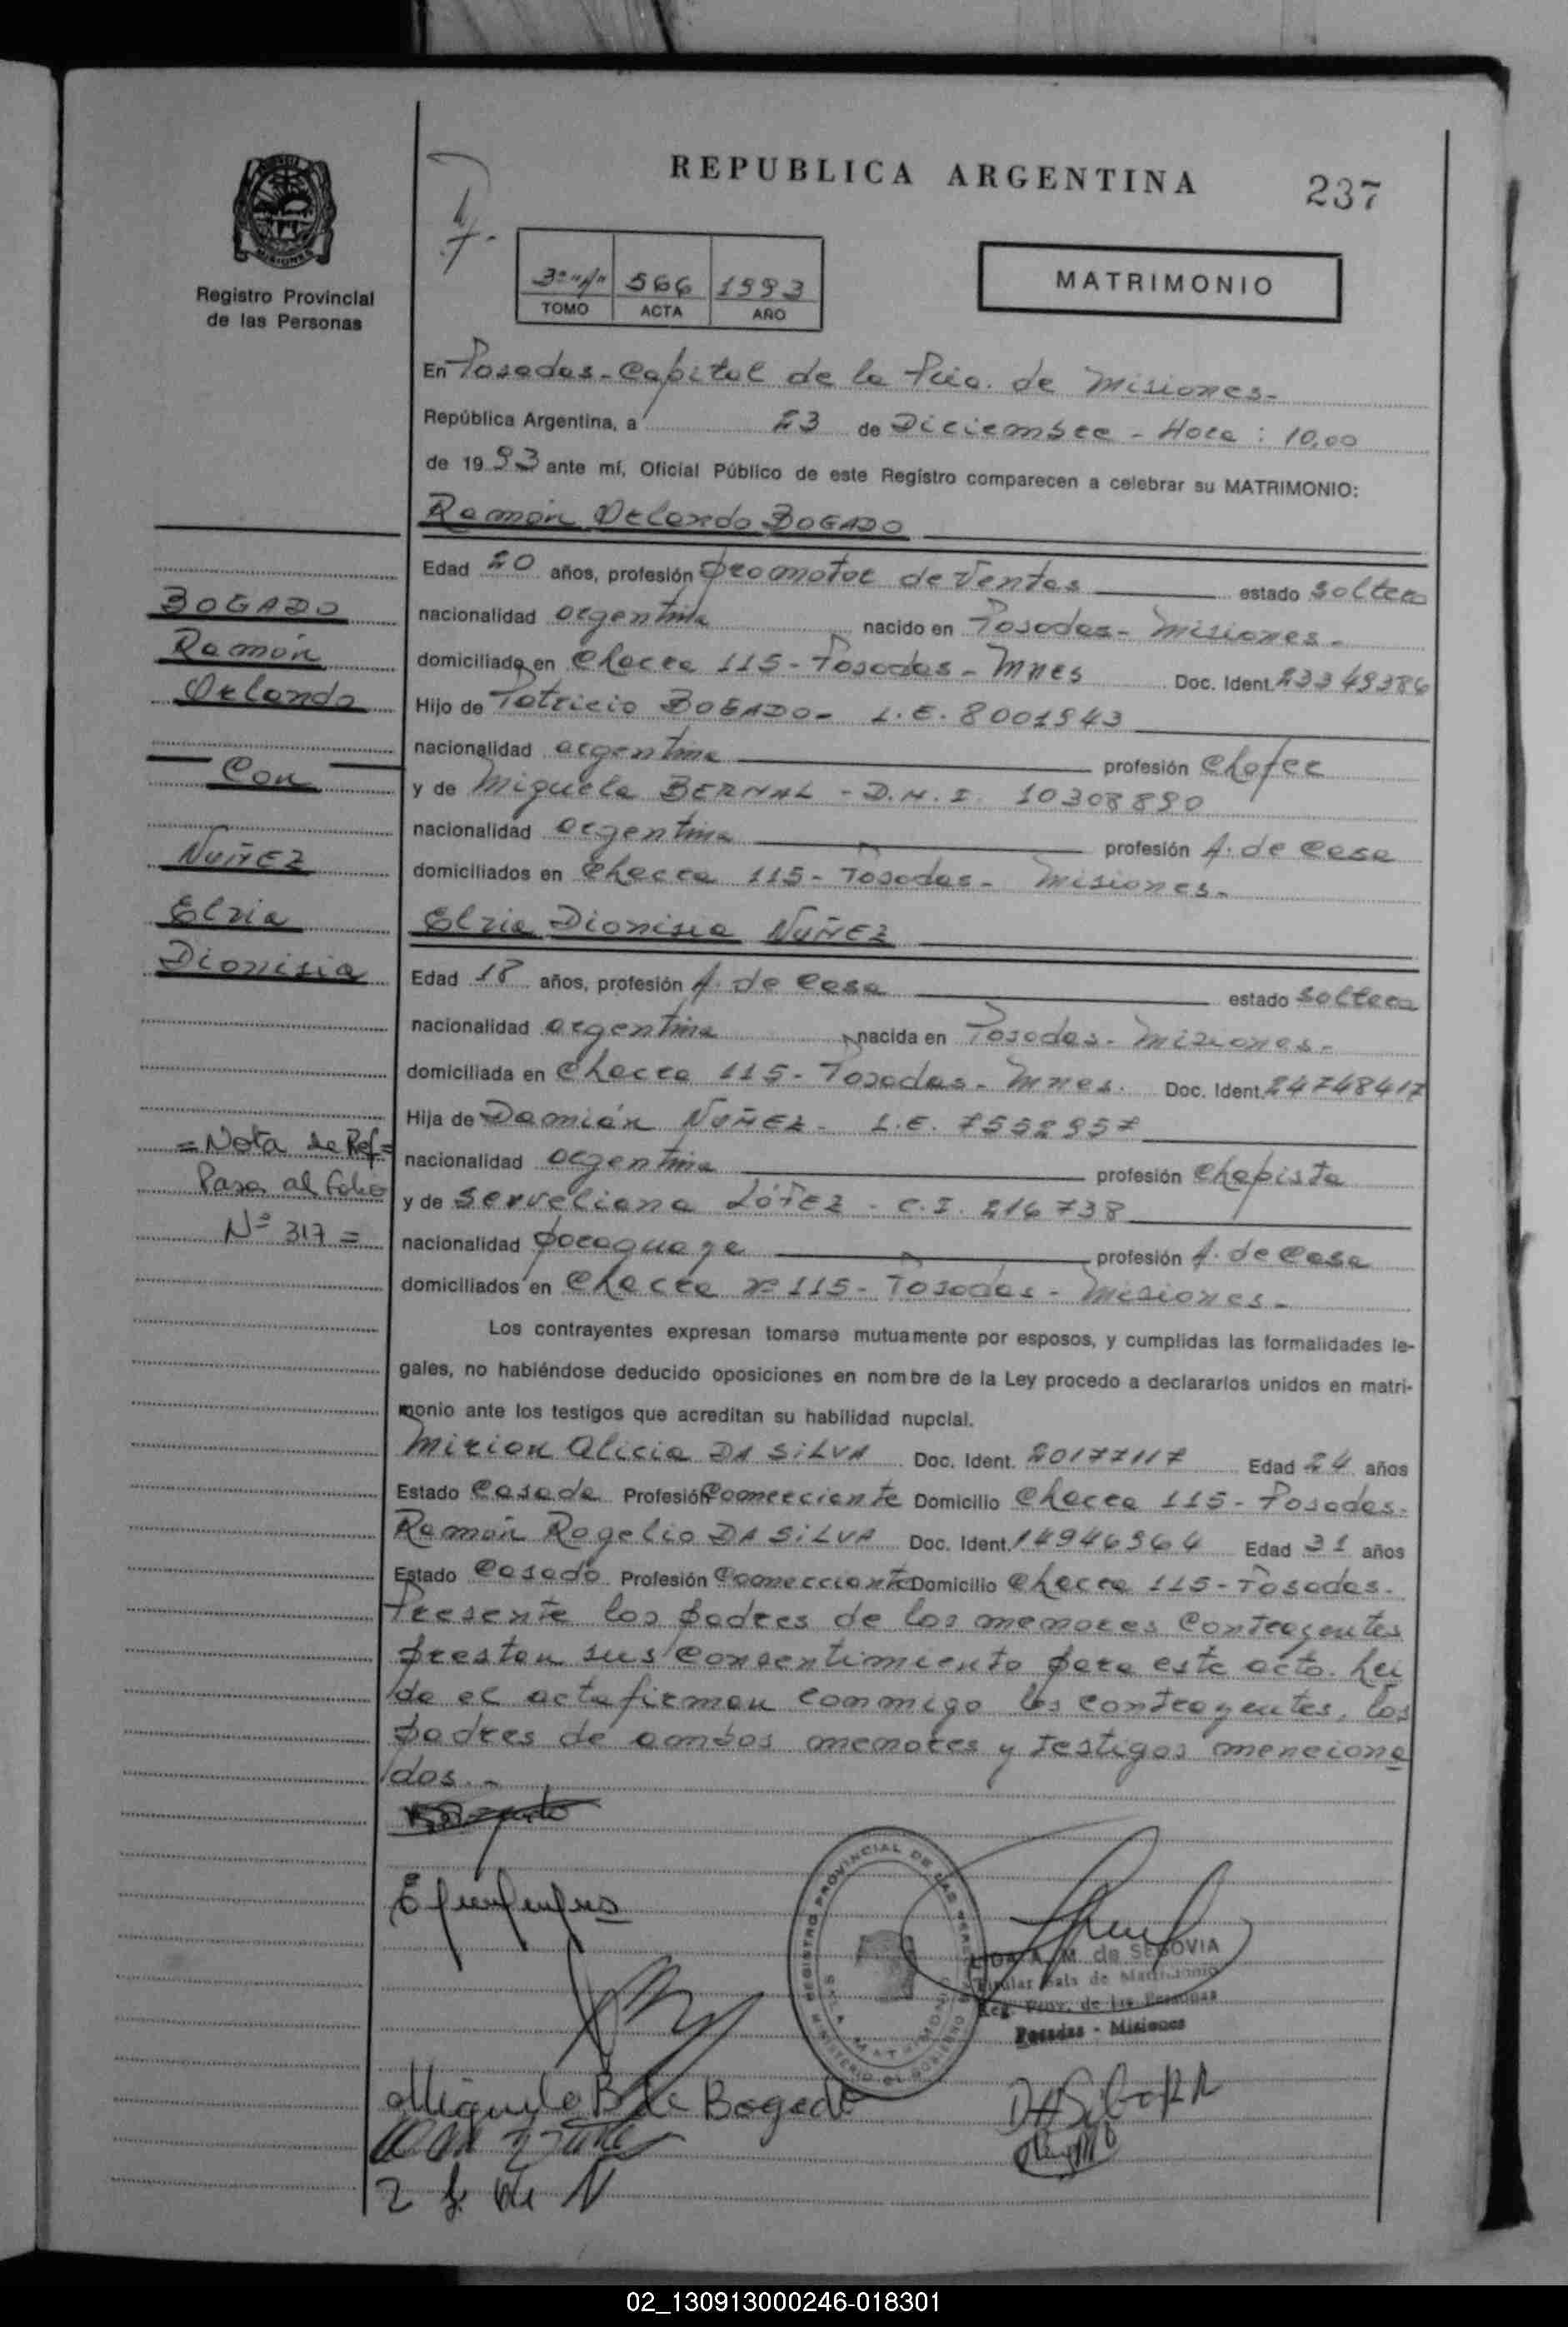 REPUBLICA ARGENTINA
237
MISIONES
Registro Provincial
de las Personas
3º "A" 566 1993
TOMO ACTA AÑO
MATRIMONIO
En Posadas - Capital de la Pcia. de Misiones-
República Argentina, a 23 de Diciembre - Hora : 10,00
de 1993 ante mí, Oficial Público de este Registro comparecen a celebrar su MATRIMONIO:
Ramón Orlando BOGADO
Edad 20 años, profesión promotor de Ventas estado soltero
nacionalidad argentina nacido en Posadas - Misiones -
domiciliado en Chacra 115 - Posadas - Mnes Doc. Ident. 23349386
Hijo de Patricio BOGADO - L.E. 8001943
nacionalidad argentina profesión Chofer
y de Miguela BERNAL - D.N.I. 10308890
nacionalidad argentina profesión A. de Casa
domiciliados en Chacra 115 - Posadas - Misiones -
Elzia Dionisia NUÑEZ
Edad 18 años, profesión A. de Casa estado soltera
nacionalidad argentina nacida en Posadas - Misiones -
domiciliada en Chacra 115 - Posadas - Mnes. Doc. Ident. 24748417
Hija de Damián NUÑEZ - L.E. 7552957
nacionalidad argentina profesión Chapista
y de Serveliana LÓPEZ - C.I. 216738
nacionalidad paraguaya profesión A. de Casa
domiciliados en Chacra Nº 115 - Posadas - Misiones -
BOGADO
Ramón
Orlando
Con
NUÑEZ
Elzia
Dionisia
= Nota de Ref =
Pasa al folio
Nº 317 =
Los contrayentes expresan tomarse mutuamente por esposos, y cumplidas las formalidades le-
gales, no habiéndose deducido oposiciones en nombre de la Ley procedo a declararlos unidos en matri-
monio ante los testigos que acreditan su habilidad nupcial.
Mirion Alicia DA SILVA Doc. Ident. 20177117 Edad 24 años
Estado Casada Profesión Comerciante Domicilio Chacra 115 - Posadas -
Ramón Rogelio DA SILVA Doc. Ident. 14946964 Edad 31 años
Estado Casado Profesión Comerciante Domicilio Chacra 115 - Posadas -
Presente los padres de los menores Contrayentes
prestan sus consentimiento para este acto. Lei
da el acta firman conmigo los contrayentes, los
padres de ambos menores y testigos menciona
dos. -
REGISTRO PROVINCIAL DE LAS PERSONAS
SALA MATRIMONIO
MINISTERIO DE GOBIERNO
A. M. de SEGOVIA
Titular Sala de Matrimonio
Reg. Prov. de las Personas
Posadas - Misiones
Miguela B de Bogado
02_130913000246-018301